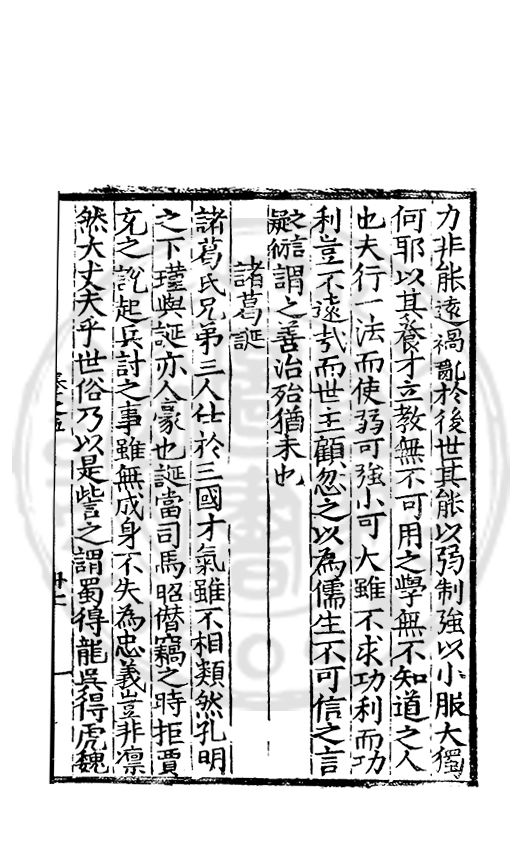 力非能遠禍亂於後世其能以弱制強以小服大獨
何耶以其養才立教無不可用之學無不知道之人
也夫行一法而使弱可強小可大雖不求功利而功
利豈不遠哉而世主顧忽之以為儒生不可信之言
之信謂之善治殆猶未也
諸葛誕
諸葛氏兄弟三人仕於三國才氣雖不相類然孔明
之下瑾與誕亦人豪也誕當司馬昭僭竊之時拒賈
充之說起兵討之事雖無成身不失為忠義豈非凛
然大丈夫乎世俗乃以是訾之謂蜀得龍吳得虎魏
卷之五
廿一